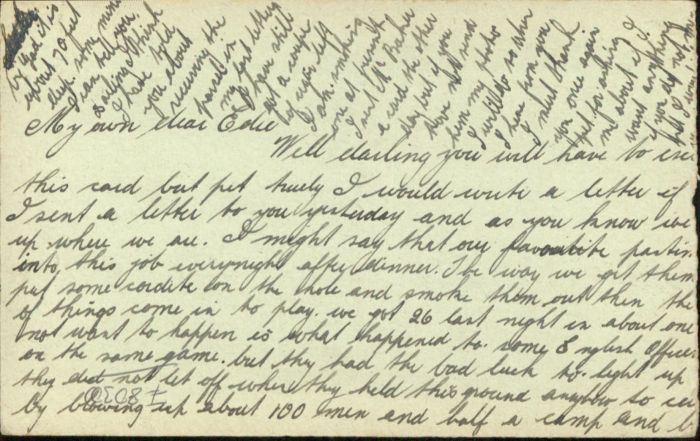 My own dear Edie
Well darling you will have to exc
this card but pet truely I would write a letter if
I sent a letter to you yesterday and as you know we
up where we are. I might say that our favourite pastim
into this job everynight after dinner. The way we get them
put some cordite on the hole and smoke them out then the
of things come in to play. we got 26 last night in about one
not want to happen is what happened to some English Office
on the same game. but they had the bad luck to light up
they did not let of where they held this ground anyhow so
by blowing up about 100 men and half a camp and
by God it is
about 70 feet
deep some mine
I can tell you.
Darling I think
I have told
you about
receiving the
parcel in
my last letter
I have still
got a couple
of left
I am smoking
one at present
I sent Mr Baker
a card the other
day but if you
have not send
him my photo
I will do so when
I hear from you
I must thank
you once again
pet for asking
my about if I
want anything
if you
but I